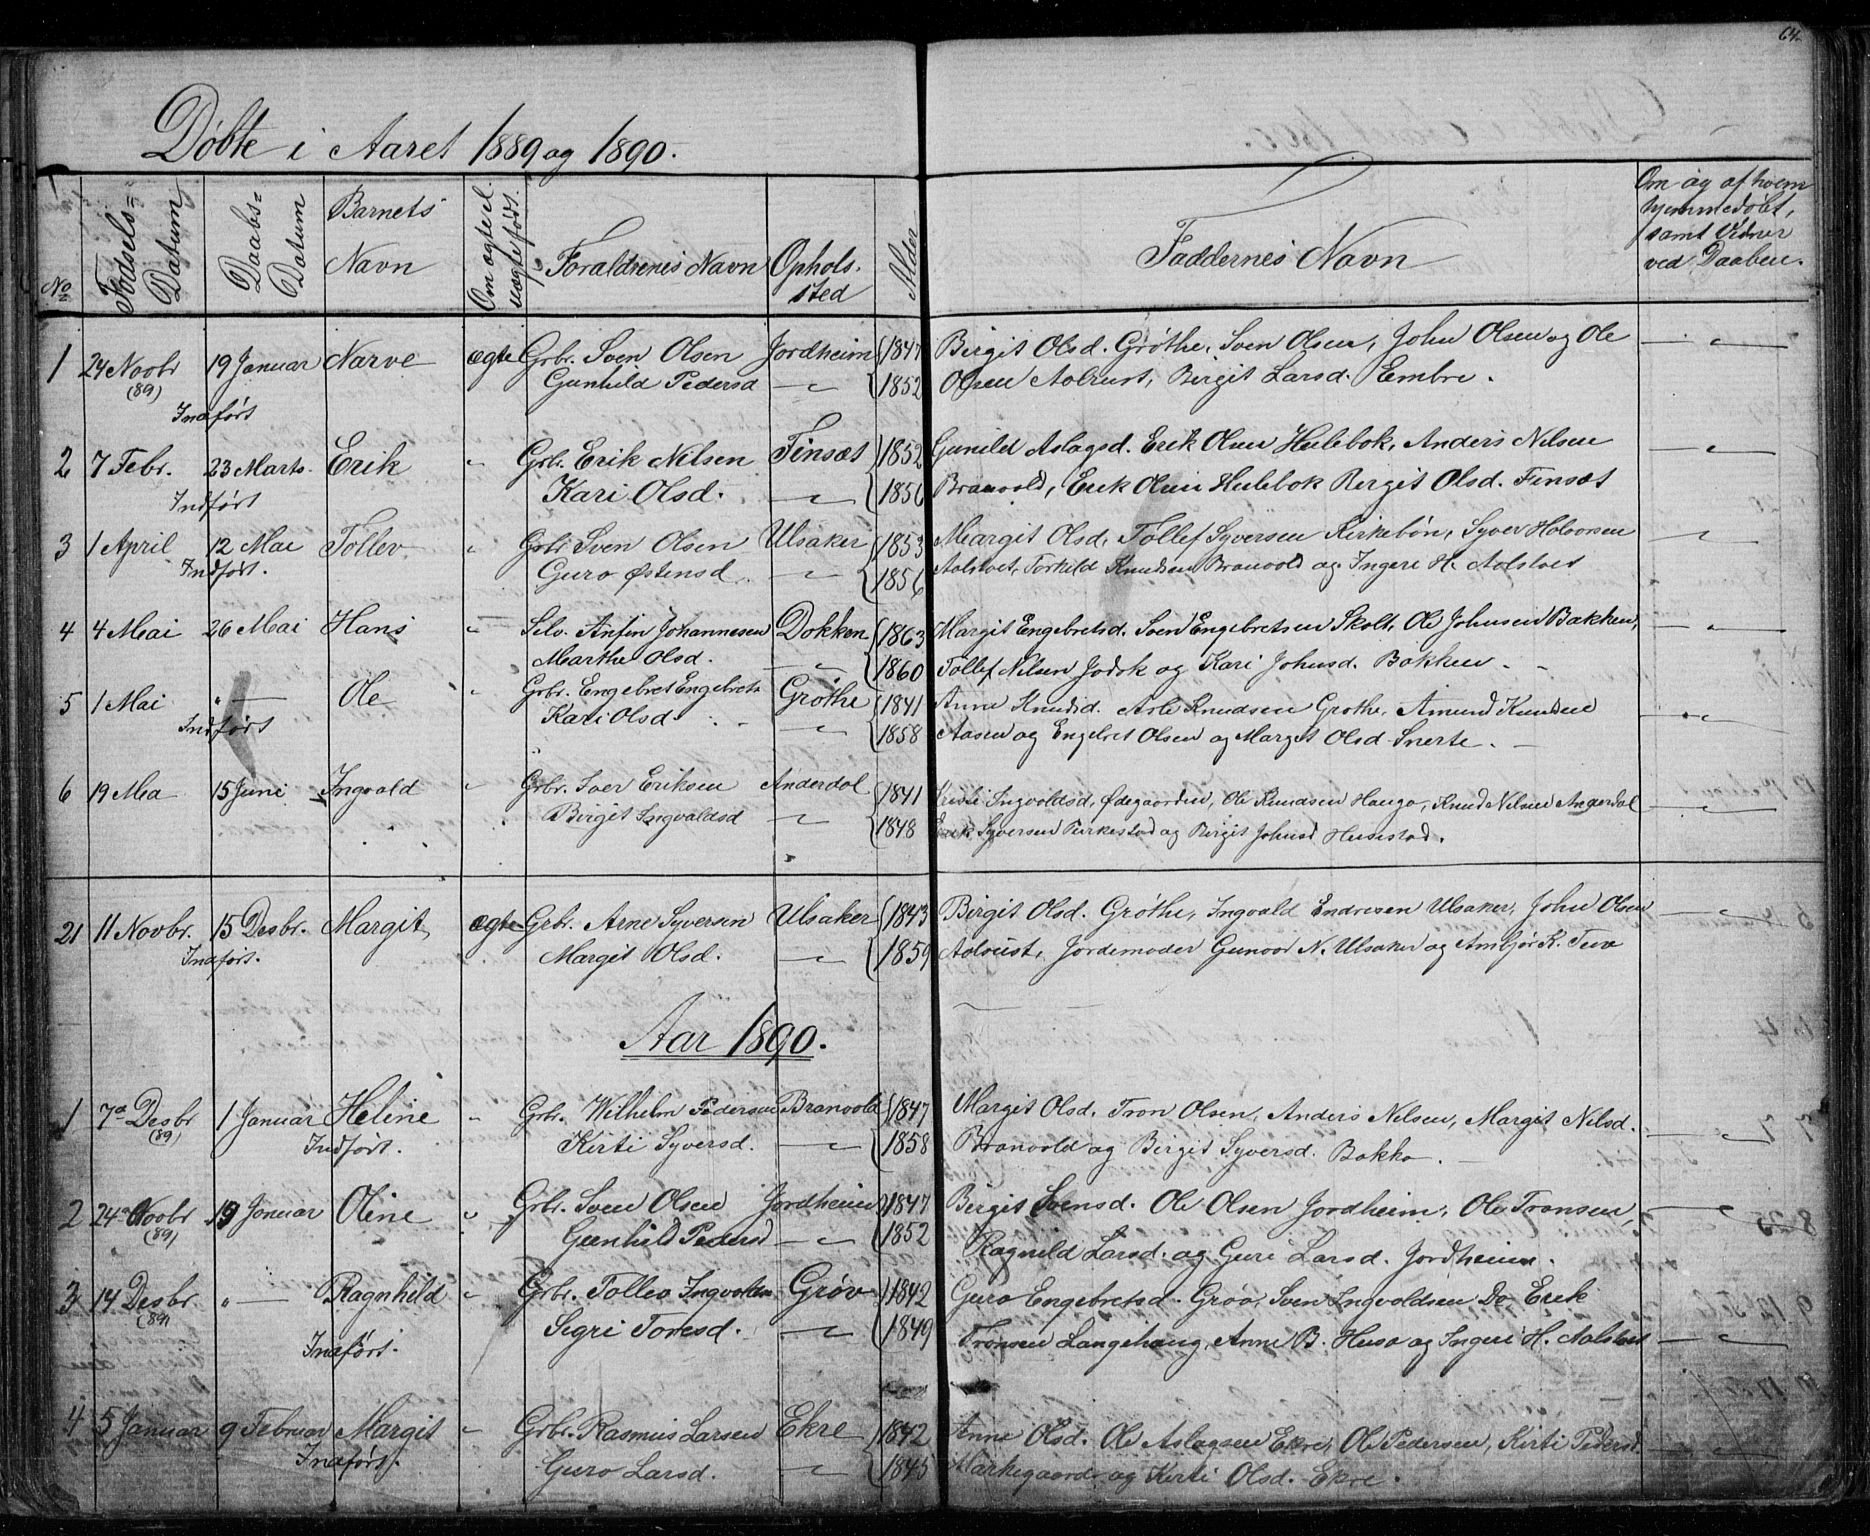 64.
Døbte i Aaret 1889 og 1890.
No
Fødsels=
Datum
Daabs=
Datum
Barnets
Navn
Om ægte el.
uægte født.
Forældrenes Navn
Ophols.
sted
Alder
Faddernes Navn
Om og af hvem
hjemmedøbt,
samt Vidner
ved Daaben.
1 24 Novbr 19 Januar Narve ægte Grbr. Sven Olsen Jordheim 1847 Birgit Olsd. Grøthe, Sven Olsen, John Olsen og Ole
(89) Gunhild Pedersd — 1852 Olsen Aolrust, Birgit Larsd. Embre.
Indført
2 7 Febr. 23 Marts. Erik " Grbr. Erik Nilsen Finsæt 1852 Gunild Aslagsd. Erik Olsen Hulebok, Anders Nilsen
Kari Olsd. — 1856 Branvold, Erik Olsen Hulebok Birgit Olsd. Finsæt
Indført
3 1 April 12 Mai Tollev " Grbr Sven Olsen Ulsaker 1853 Margit Olsd, Tollef Syversen Kirkebøn, Syver Holvorsen
Indført. Guro Østensd. — 1856 Aolstvet, Torkild Knudsen Branvold og Ingeri H. Aolstvet
4 4 Mai 26 Mai Hans " Selv. Anfin Johannesen Dokken 1863 Margit Engebretsd. Sven Engebretsen Skolt, Ole Johnsen Bakken,
Marthe Olsd. — 1860 Tollef Nilsen Jodok og Kari Johnsd. Bakken.
5 1 Mai " — Ole " Grbr. Engebret Engebrets Grøthe 1841 Anne Knudsd. Arle Knudsen Grothe, Amund Knudsen
Indført Kari Olsd. — 1858 Aasen og Engebret Olsen og Marget Olsd Snerte.
6 19 Ma 15 Juni Ingvald " Grbr. Iver Eriksen Anderdal 1841 Ingvoldsd, Ødegaarden, Ole Knudsen Haugo, Knud Nilsen Angerdal
Birgit Ingvaldsd — 1848 Erik Syversen Purkestad og Birgit Johnsd Husestad.
21 11 Novbr. 15 Desbr. Margit ægte Grbr. Arne Syversen Ulsaker 1843 Birgit Olsd. Grøthe, Ingvald Endresen Ulsaker, John Olsen
Indført. Margit Olsd. — 1859 Aolrust, Jordemoder Gunvor N. Ulsaker og Ambjør K. Tuve
Aar 1890.
1 7de Desbr 1 Januar Heline " Grbr. Wilhelm Pedersen Branvold 1847 Margit Olsd. Tron Olsen, Anders Nilsen, Margit Nilsd.
(89) Indført. Kirti Syversd. — 1858 Branvold og Birgit Syversd. Bakko.
2 24de Novbr 19 Januar Oline " Grbr. Sven Olsen Jordheim 1847 Birgit Svensd. Ole Olsen Jordheim, Ole Tronsen,
(89) Gunhild Pedersd — 1852 Ragnild Larsd. og Guri Larsd. Jordheim.
3 14 Desbr " — Ragnhild " Grbr. Tollev Ingvolds Grøv 1842 Guro Engebretsd. Grøv, Sven Ingvoldsen Do Erik
(89) Indført. Segri Toresd. — 1849 Tronsen Langehaug, Anne B. Huso og Ingeri H. Aolstvet
4 5 Januar 9 Februar Margit " Grbr. Rasmus Larsen Ekre 1842 Anne Olsd. Ole Aslagsen Ekre, Ole Pedersen, Kirti Pedersd
Indført. Guro Larsd. — 1845 Markegaard og Kirti Olsd. Ekre.